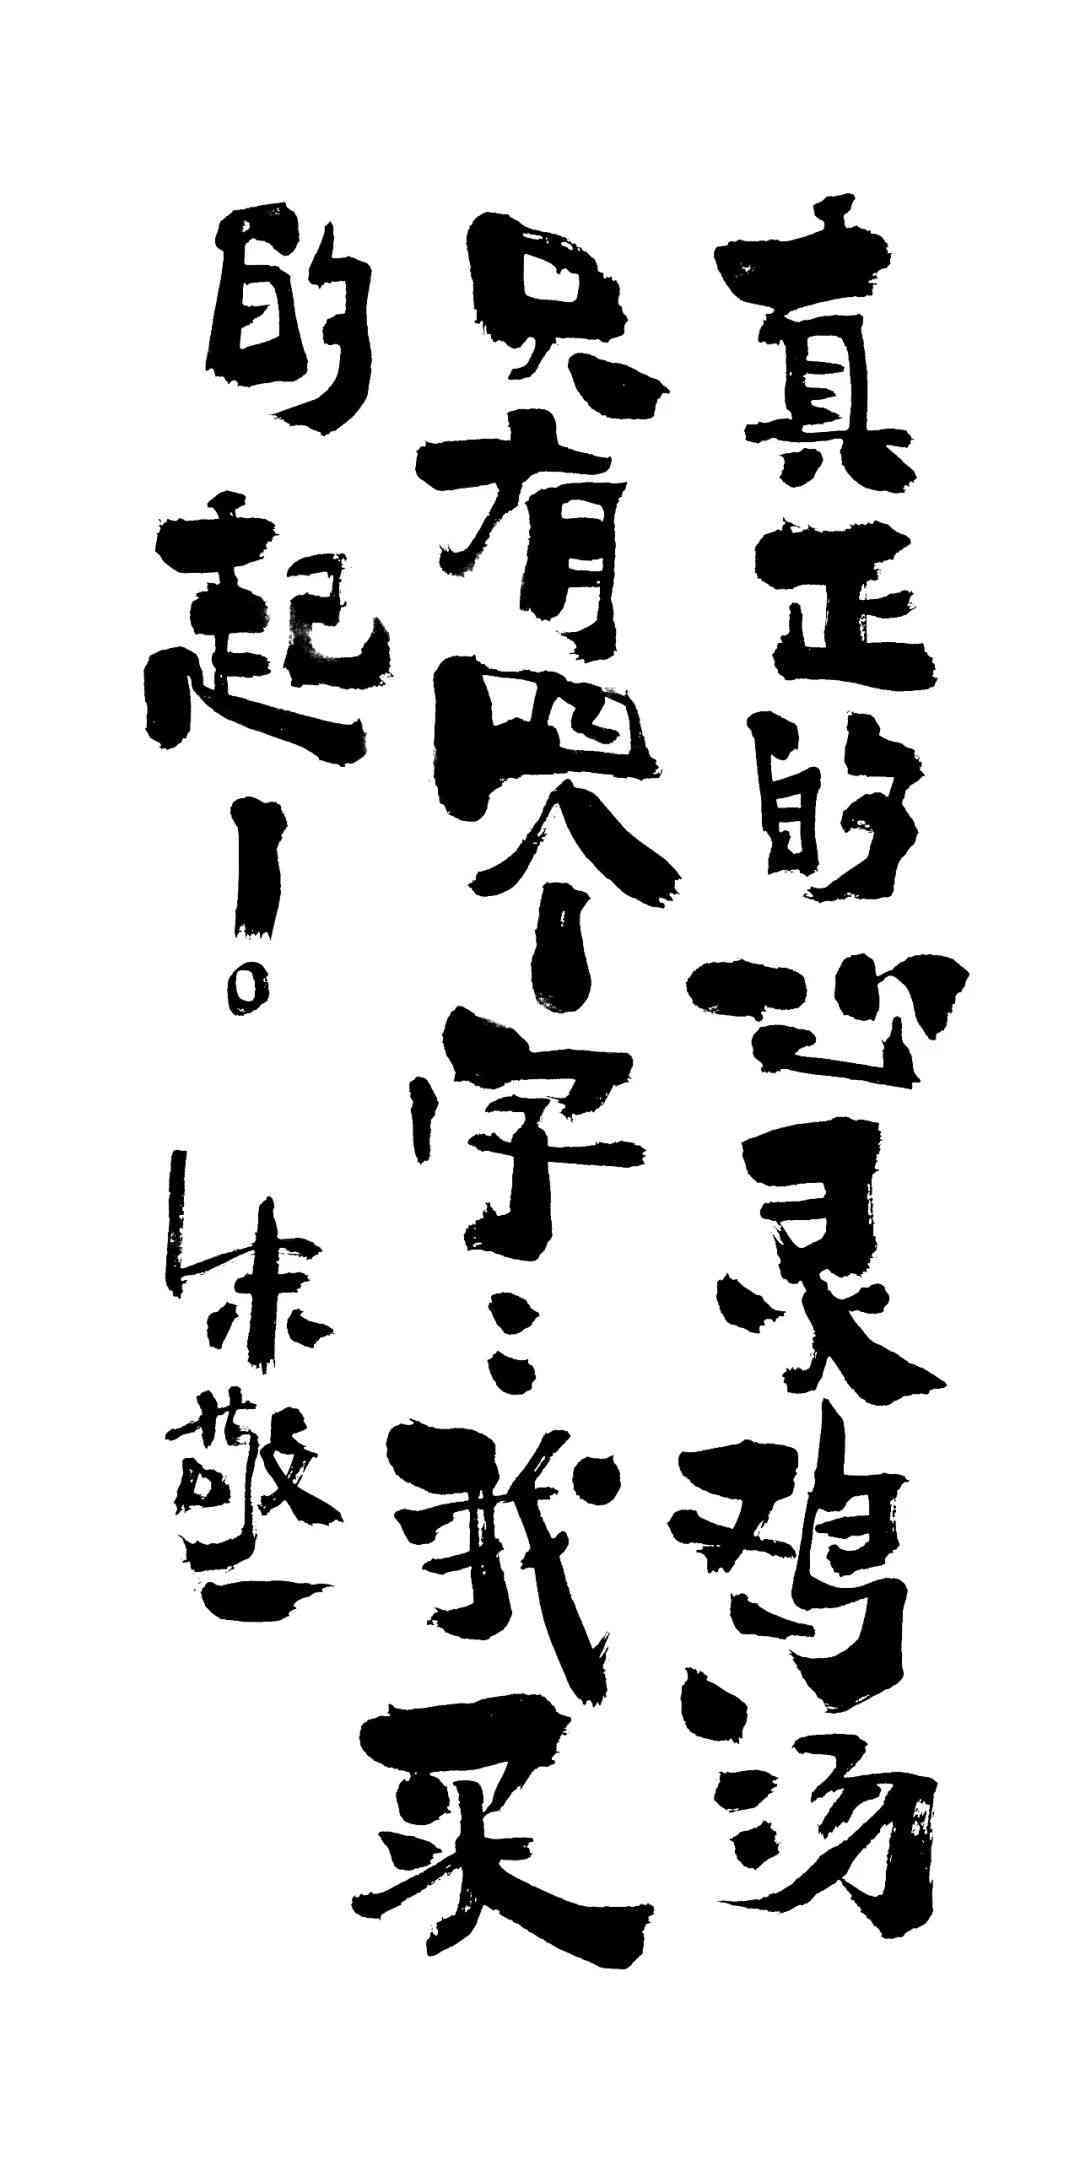 真正的心灵鸡汤
只有四个字：我买
的起！。朱敬一